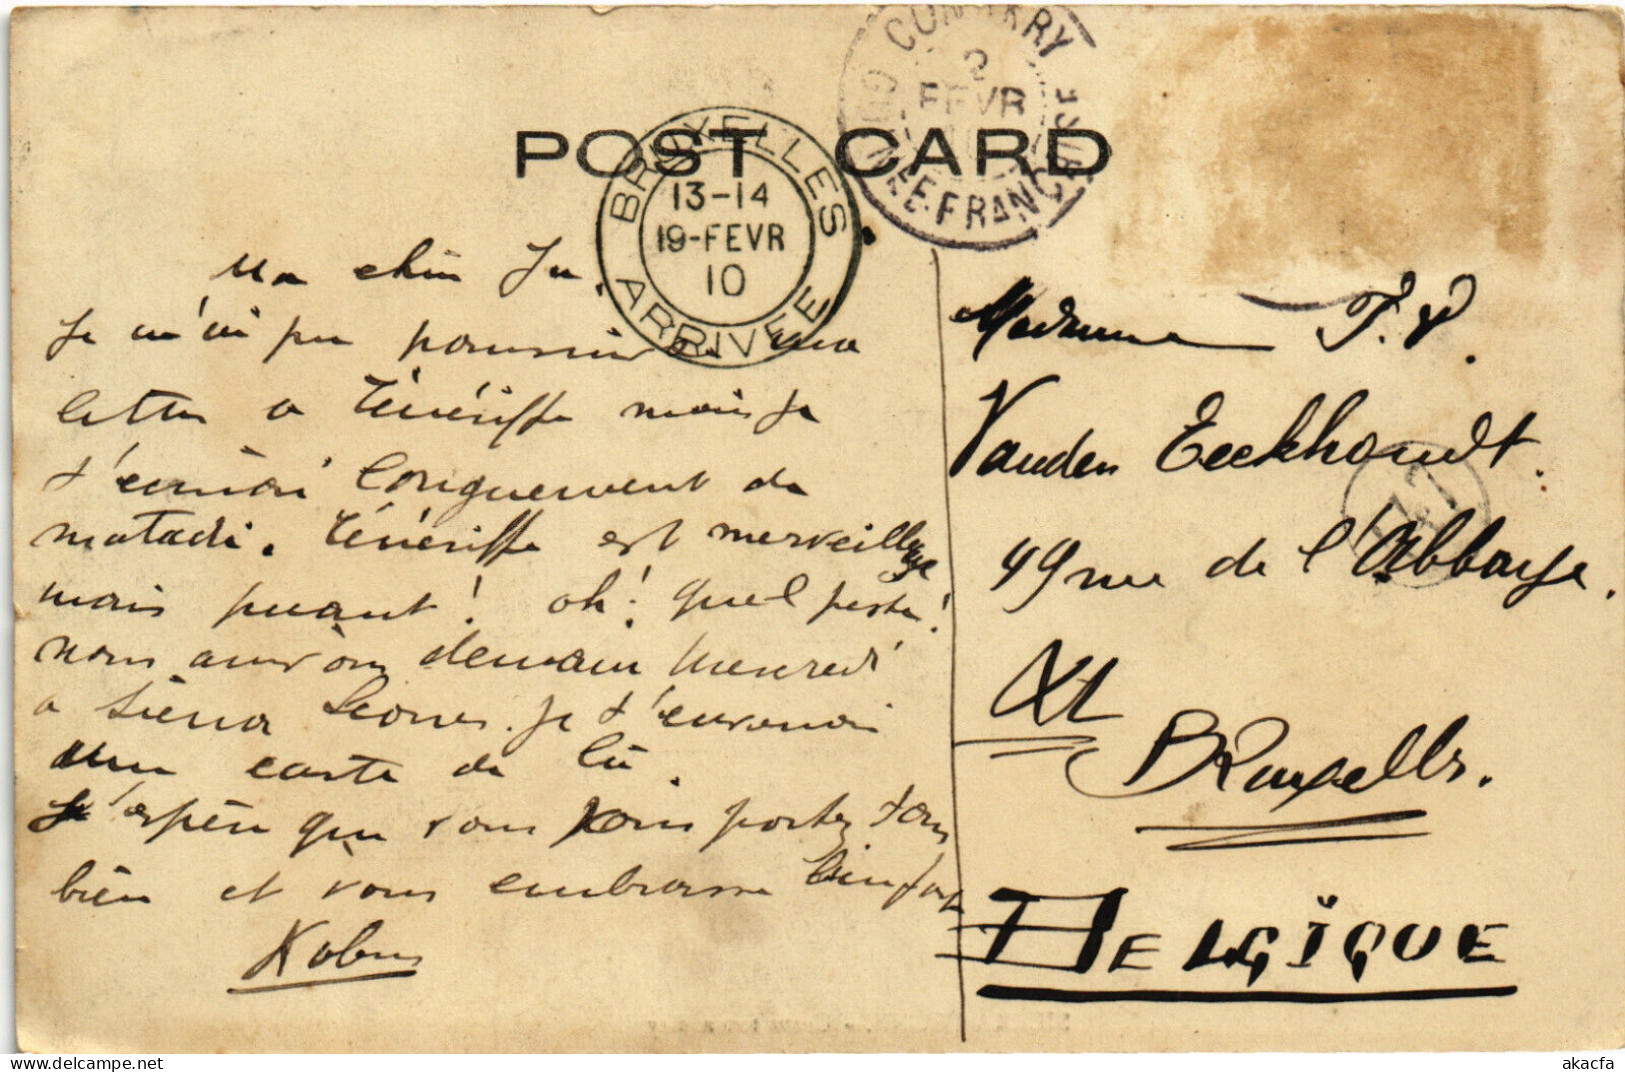 POST CARD
CONAKRY
2
FEVR
GUINÉE FRANÇAISE
BRUXELLES
13-14
19-FEVR
10
ARRIVÉE
Ma chère Ju
Je n'ai pu poursuivre ma
lettre a Ténériffe mais je
t'écrirai longuement de
matadi. Ténériffe est merveilleuse
mais puant! oh! quel peste!
nous aurons demain mercredi
a Sierra Leone. Je t'enverrai
une carte de là.
J'espère que vous vous portez tous
bien et vous embrasse bien fort
Kobus
Madame J. V.
Vanden Eeckhoudt.
49 rue de l'Abbaye.
XL
Bruxelles.
BELGÏQUE
akacfa